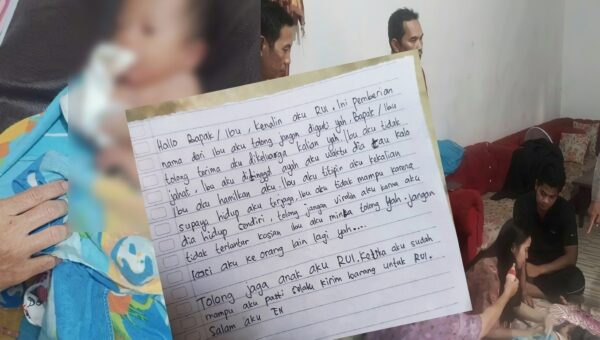 Hallo Bapak / Ibu, Kenalin aku RUI. Ini pemberian
nama dari Ibu aku tolong jangan diganti yah. Bapak / Ibu
tolong terima aku dikeluarga kalian yah, Ibu aku tidak
jahat, Ibu aku ditinggal ayah aku waktu dia tau kalo
Ibu aku hamilkan aku, Ibu aku titipin aku kekalian
supaya hidup aku terjaga, Ibu aku tidak mampu karena
dia hidup sendiri, tolong jangan viralin aku karna aku
tidak terlantar kasian Ibu aku minta tolong yah. Jangan
kasi aku ke orang lain lagi yah...
Tolong jaga anak aku RUI. Ketika aku sudah
mampu aku pasti selalu kirim barang untuk RUI.
Salam aku